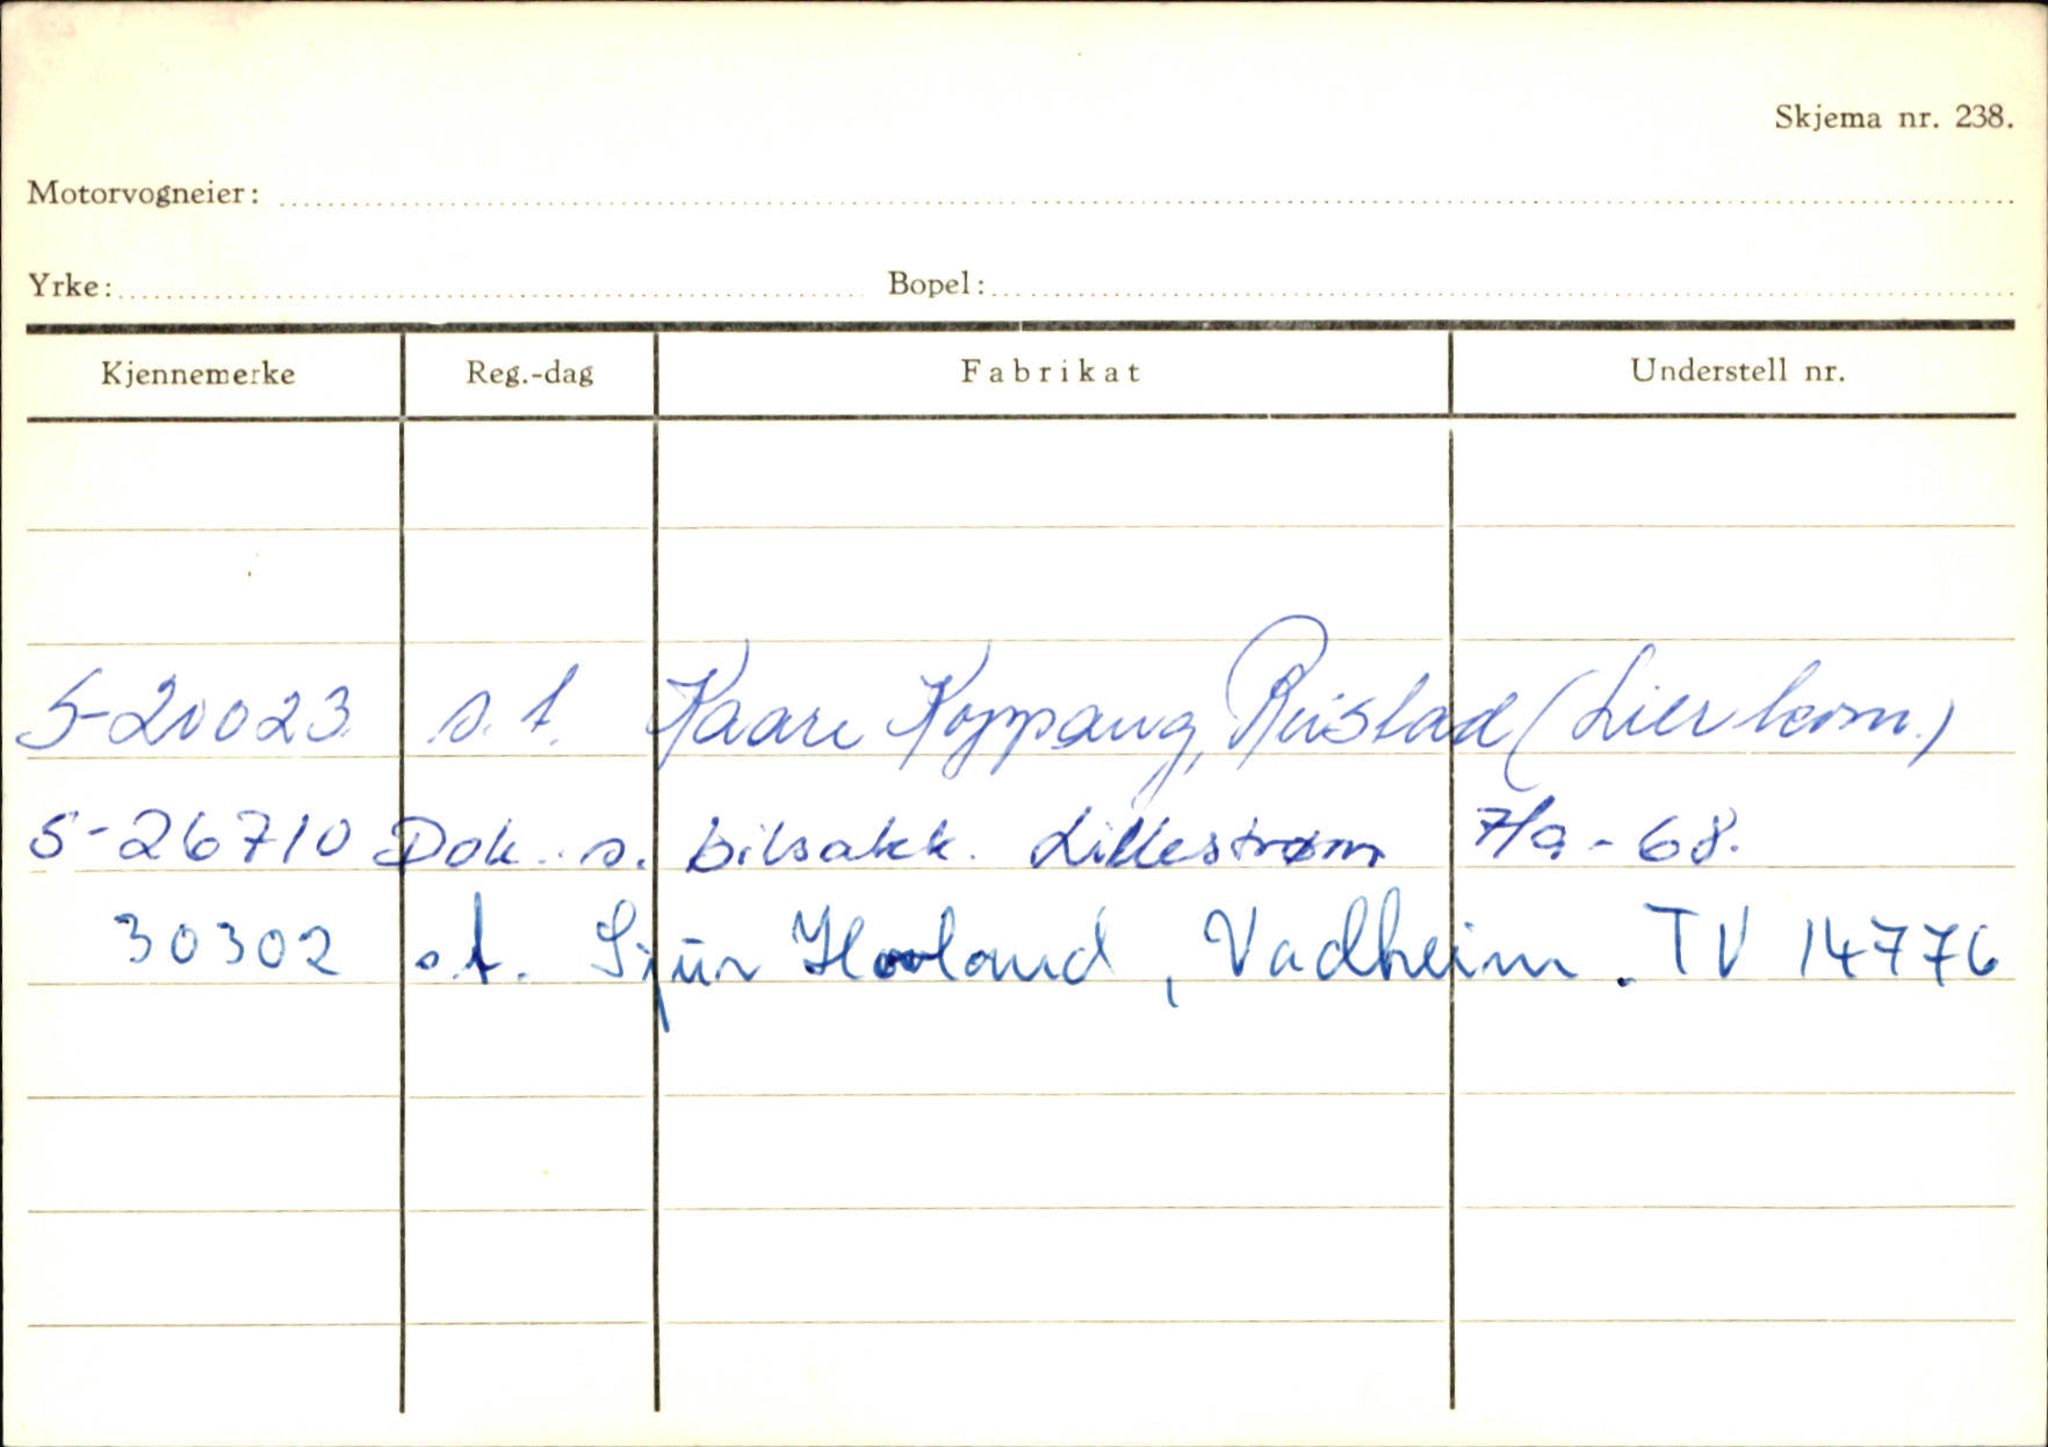 Skjema nr. 238.
Motorvogneier:
Yrke: Bopel:
Kjennemerke Reg.-dag Fabrikat Understell nr.
S-20023 s.t. Kaare Koppang, Rustad (Lier kom.)
S-26710 Dok. s. bilsakk. Lillestrøm 7/9-68.
30302 s.t. Sjur Hovland, Vadheim. TV 14776